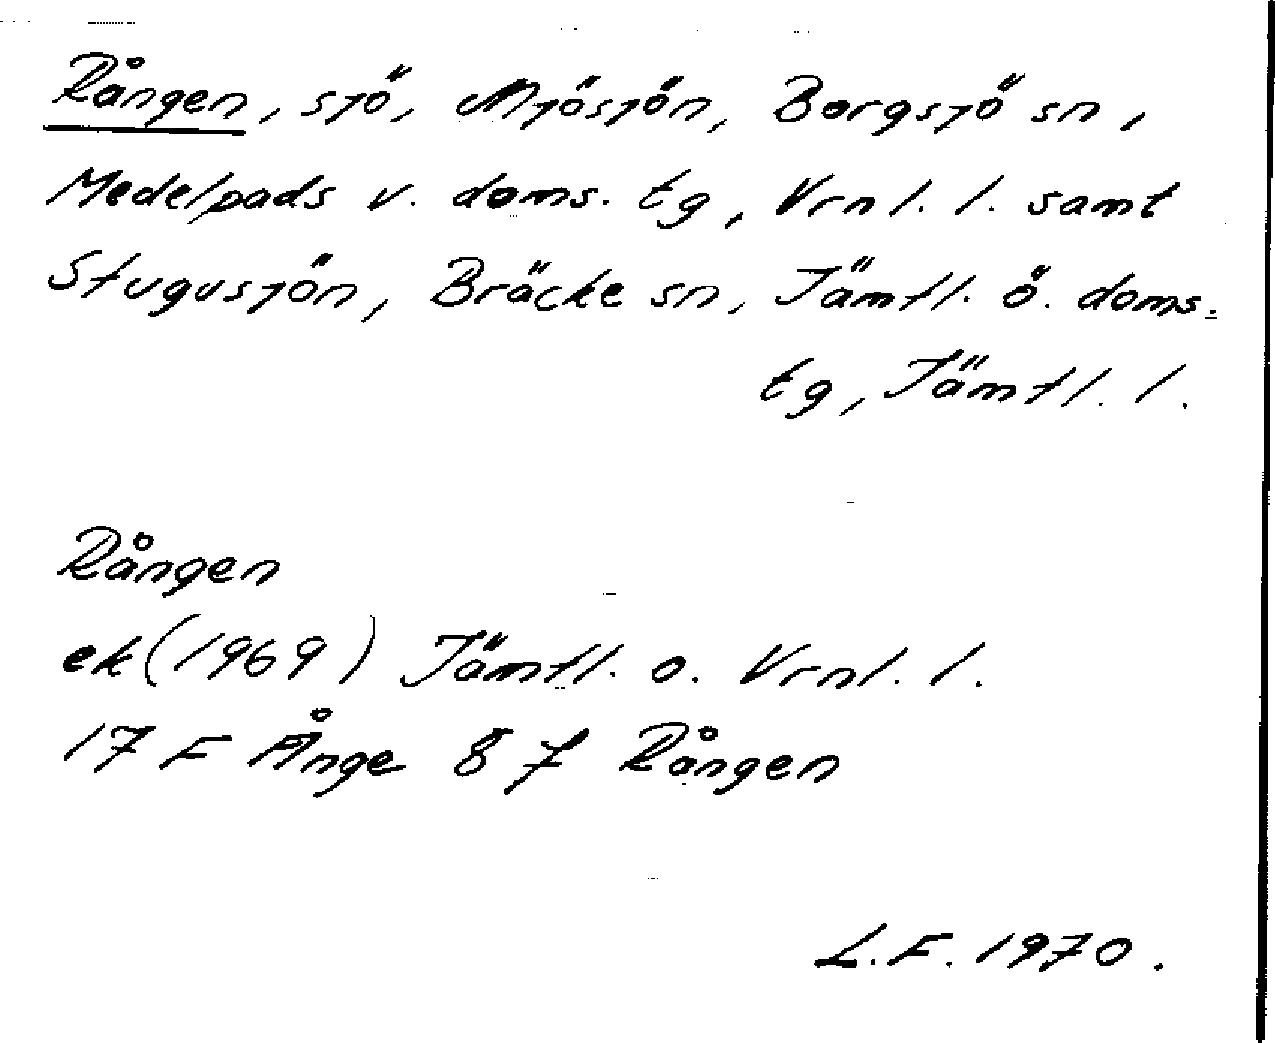 Rången, sjö, Mjösjön, Borgsjö sn,
Medelpads v. doms. tg, Vrnl. l. samt
Stugusjön, Bräcke sn, Jämtl. ö. doms.
tg, Jämtl. l.
Rången
ek (1969) Jämtl. o. Vrnl. l.
17 F Ånge 8 f Rången
L.F. 1970.